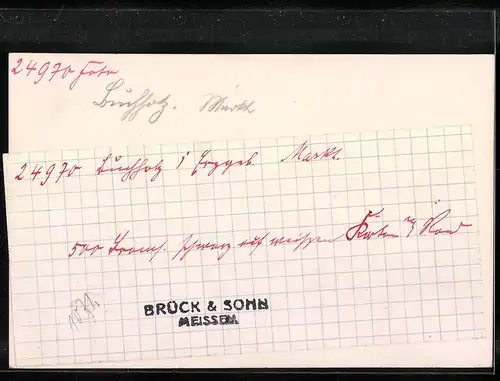 24970 Foto
Buchholz. Markt
24970 Buchholz i Erzgeb. Markt.
500 schwarz auf weissen Karton Rand
BRÜCK & SOHN
MEISSEN.